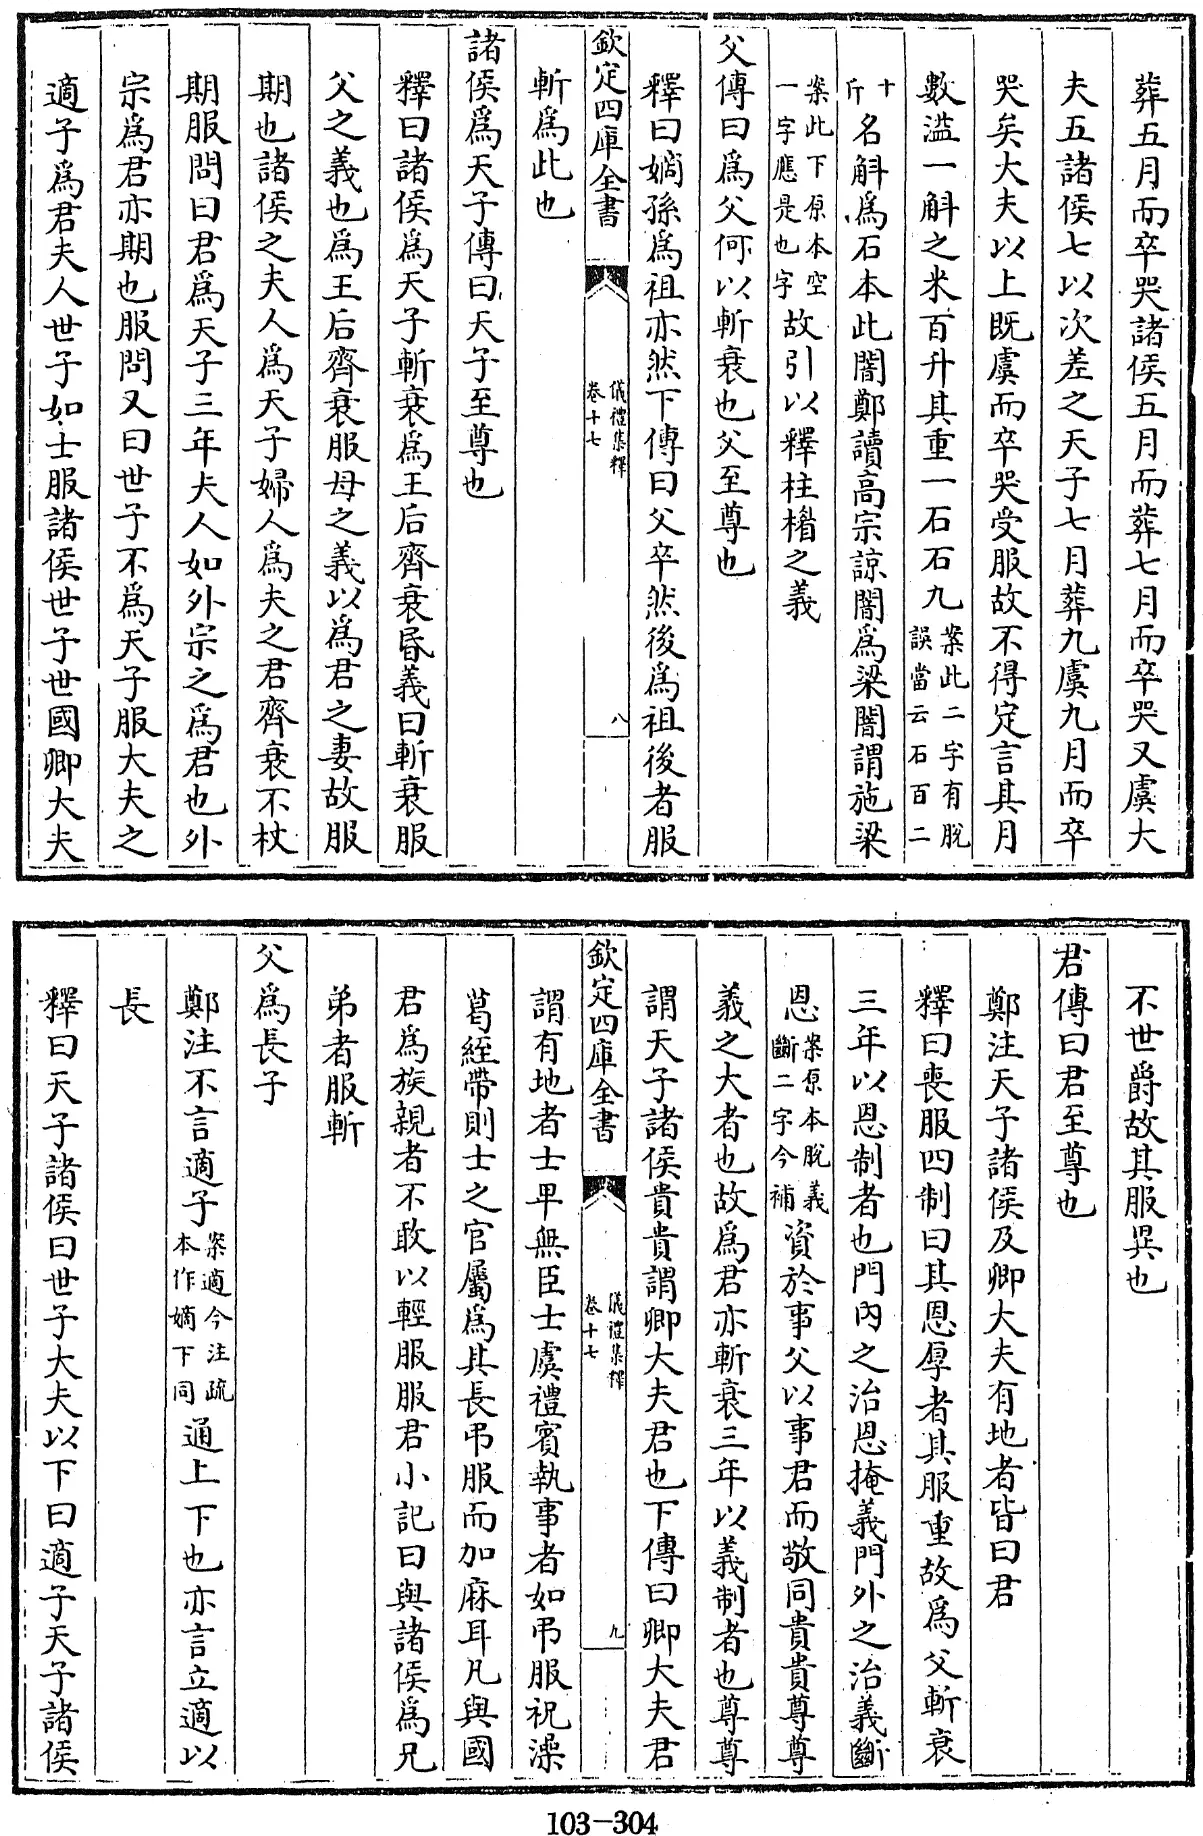 葬五月而卒哭諸侯五月而葬七月而卒哭又虞大
夫五諸侯七以次差之天子七月葬九虞九月而卒
哭矣大夫以上既虞而卒哭受服故不得定言其月
數溢一斛之米百升其重一石石九案此二字有脫誤當云石百二
十斤名斛爲石本此闇鄭讀高宗諒闇爲梁闇謂施梁
案此下原本空一字應是也字故引以釋柱楣之義
父傳曰爲父何以斬衰也父至尊也
釋曰嫡孫爲祖亦然下傳曰父卒然後爲祖後者服
欽定四庫全書 儀禮集釋卷十七 八
斬爲此也
諸侯爲天子傳曰天子至尊也
釋曰諸侯爲天子斬衰爲王后齊衰昏義曰斬衰服
父之義也爲王后齊衰服母之義以爲君之妻故服
期也諸侯之夫人爲天子婦人爲夫之君齊衰不杖
期服問曰君爲天子三年夫人如外宗之爲君也外
宗爲君亦期也服問又曰世子不爲天子服大夫之
適子爲君夫人世子如士服諸侯世子世國卿大夫
不世爵故其服異也
君傳曰君至尊也
鄭注天子諸侯及卿大夫有地者皆曰君
釋曰喪服四制曰其恩厚者其服重故爲父斬衰
三年以恩制者也門內之治恩掩義門外之治義斷
恩案原本脫義斷二字今補資於事父以事君而敬同貴貴尊尊
義之大者也故爲君亦斬衰三年以義制者也尊尊
謂天子諸侯貴貴謂卿大夫君也下傳曰卿大夫君
欽定四庫全書 儀禮集釋卷十七 九
謂有地者士卑無臣士虞禮賓執事者如弔服祝澡
葛絰帶則士之官屬爲其長弔服而加麻耳凡與國
君爲族親者不敢以輕服服君小記曰與諸侯爲兄
弟者服斬
父爲長子
鄭注不言適子案適今注疏本作嫡下同通上下也亦言立適以
長
釋曰天子諸侯曰世子大夫以下曰適子天子諸侯
103-304